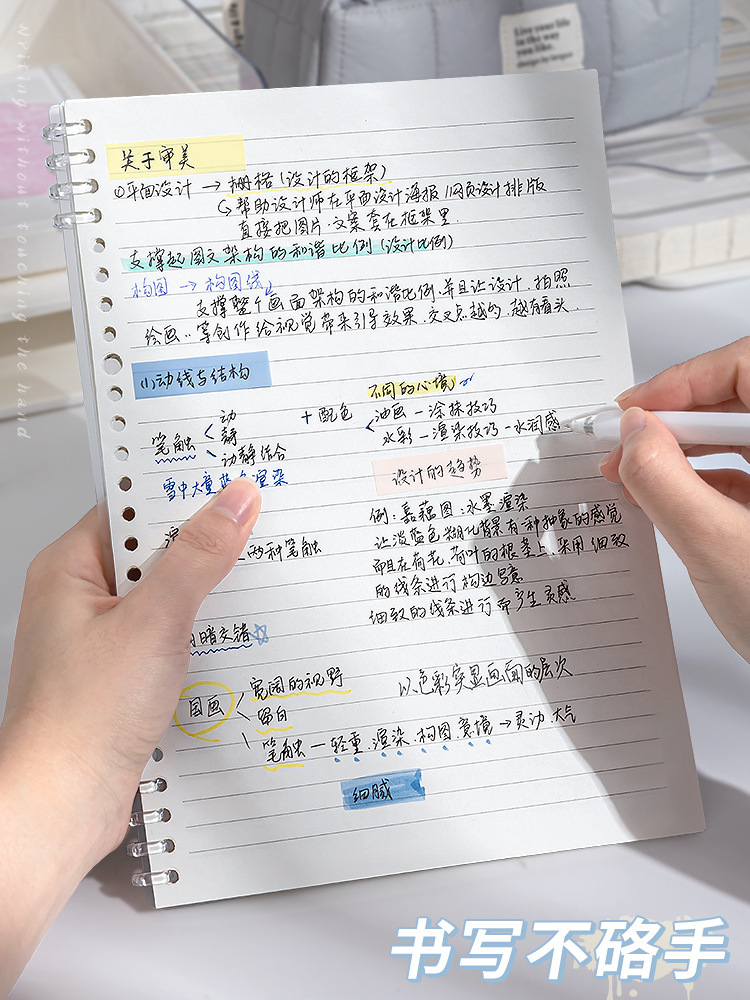 Live your life
in the way
you like.
design by beguo
writing without touching the hand
关于审美
①平面设计 → 栅格(设计的框架)
↳ 帮助设计师在平面设计海报 网页设计排版
直接把图片.文案套在框架里.
支撑起图文架构的和谐比例(设计比例)
构图 → 构图线
支撑整个画面架构的和谐比例.并且让设计.拍照
绘画..等创作给视觉带来引导效果.交叉点越多.越有看头.
(1)动线与结构
笔触 < 动
静
动静结合
+ 配色
不同的心境
< 油画 - 涂抹技巧
水彩 - 渲染技巧 - 水润感
雪中大量蓝色渲染
两种笔触
明暗交错☆
设计的趋势
例:嘉藕图:水墨渲染
让淡蓝色糊化背景有一种抽象的感觉
而且在荷花.荷叶的根茎上.采用细致
的线条进行构边
细致的线条进行而产生灵感
国画 < 宽阔的视野
留白
笔触 - 轻重.渲染.构图.意境 → 灵动.大气
以色彩突显画面的层次
细腻
书写不硌手